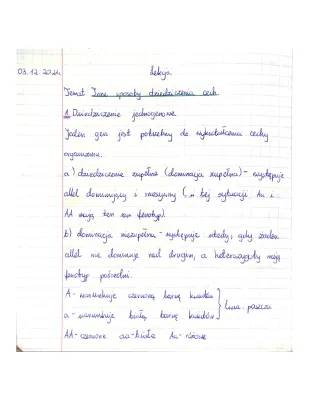 03.12.2021r. Lekcja
Temat: Inne sposoby dziedziczenia cech.
1. Dziedziczenie jednogenowe.
Jeden gen jest potrzebny do wykształcenia cechy
organizmu.
a) dziedziczenie zupełne (dominacja zupełna) - występuje
allel dominujący i recesywny (w tej sytuacji Aa i
AA mają ten sam fenotyp)
b) dominacja niezupełna - występuje wtedy, gdy żaden
allel nie dominuje nad drugim, a heterozygoty mają
fenotyp pośredni.
A - warunkuje czerwoną barwę kwiatów
a - warunkuje białą barwę kwiatów } lwia paszcza
AA - czerwone aa - białe Aa - różowe